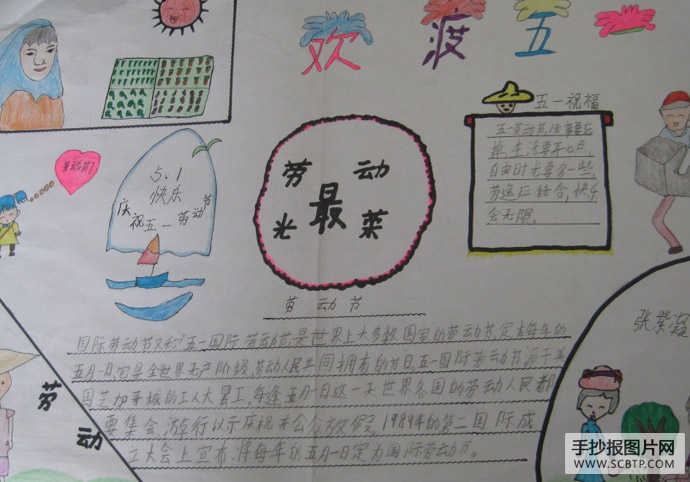 欢 度 五
五一祝福
五一劳动节,注事要记
掉,生活要开心点,
自由时光要多一些,
劳逸后结合,快乐
会无限。
劳动节
5.1
快乐
庆祝五一劳动节
劳 动
最
光 荣
劳 动 节
国际劳动节又称"五一国际劳动节,是世界上大多数国家的劳动节,定在每年的
五月一日,它是全世界无产阶级,劳动人民共同拥有的节日,五一国际劳动节源于美
国芝加哥城的工人大罢工,每逢五月一日这一天世界各国的劳动人民都
要集会,游行以示庆祝并公众放假,1989年的第二国际成
立大会上宣布,将每年的五月一日定为国际劳动节。
劳
动
手抄报图片网
WWW.SCBTP.COM